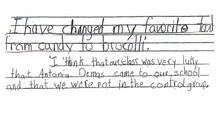 I have changed my favorite
from candy to brocolli.
I think that our class was very luky
that Antonia Demas came to our school
and that we were not in the control group.